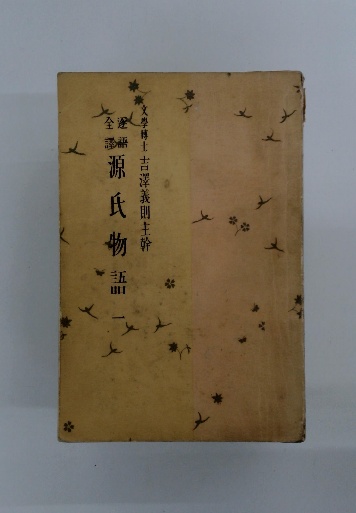 文學博士 吉澤義則主幹
逐語
全譯
源氏物語 一